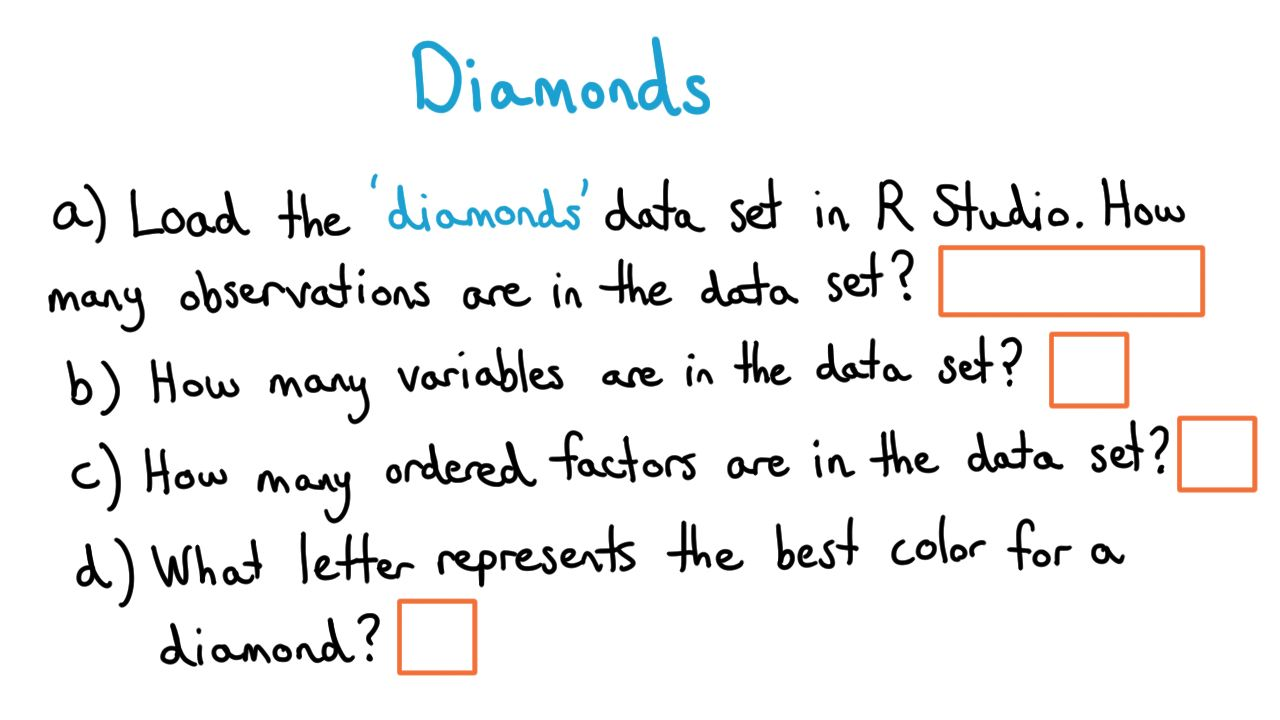 Diamonds
a) Load the 'diamonds' data set in R Studio. How
many observations are in the data set?
b) How many variables are in the data set?
c) How many ordered factors are in the data set?
d) What letter represents the best color for a
diamond?